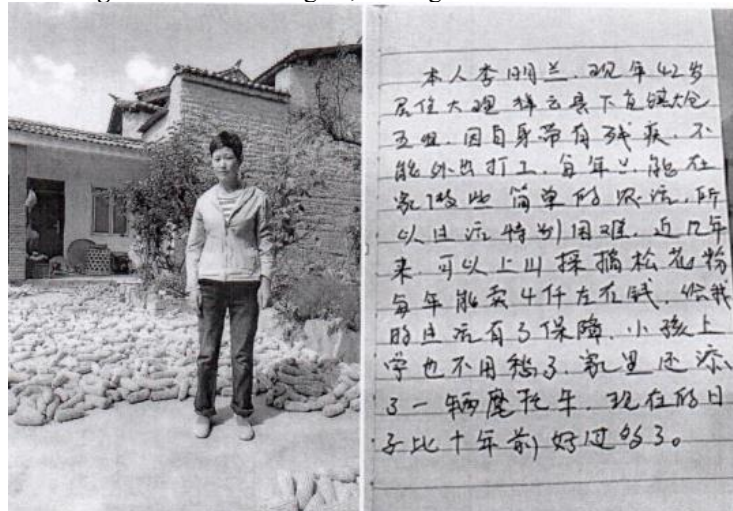 本人李明兰.现年42岁
居住大理祥云县下庄镇大仓
五组.因自身带有残疾.不
能外出打工.每年只能在
家做些简单的农活.所
以生活特别困难.近几年
来.可以上山採摘松花粉
每年能卖4仟左右钱.给我
的生活有了保障.小孩上
学也不用愁了.家里还添
了一辆摩托车.现在的日
子比十年前好过多了。